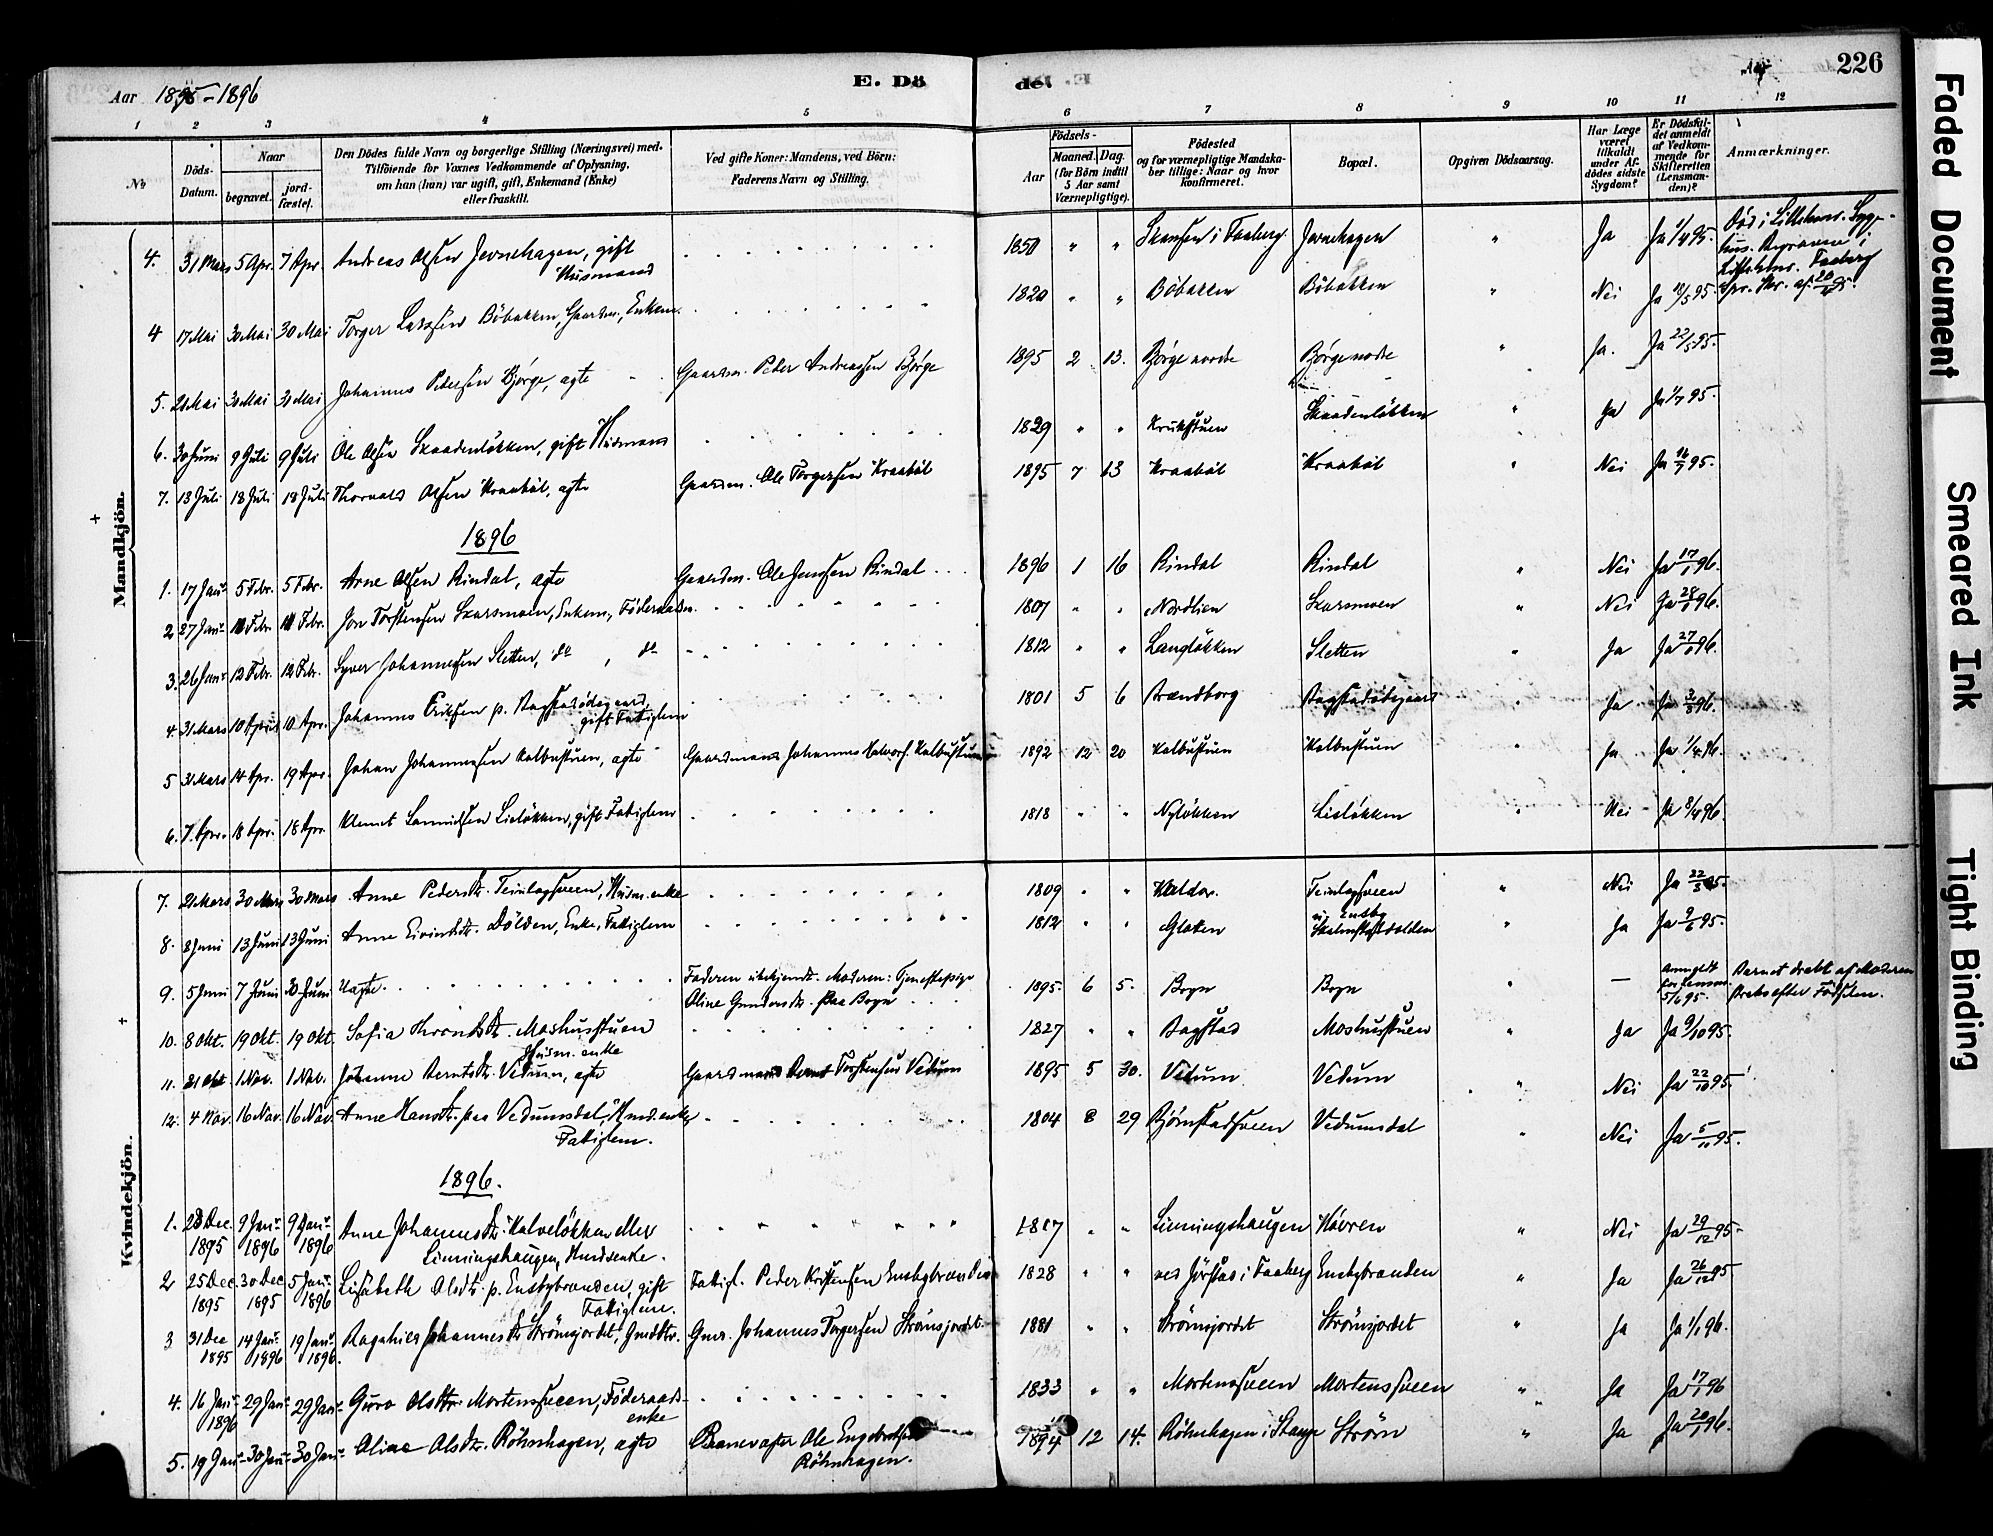 Aar 1895-1896
E. Dö
de.
226
1 2 3 4 5 6 7 8 9 10 11 12
No
Döds-Datum.
Naar
begravet.
jord-fæstet.
Den Dödes fulde Navn og borgerlige Stilling (Næringsvei) med-
Tilföiende for Voxnes Vedkommende af Oplysning,
om han (hun) var ugift, gift, Enkemand (Enke)
eller fraskilt.
Ved gifte Koner: Mandens, ved Börn:
Faderens Navn og Stilling.
Födsels-
Aar
Maaned. Dag.
(for Börn indtil
5 Aar samt
Værnepligtige).
Födested
og for værnepligtige Mandska-
ber tillige: Naar og hvor
konfirmeret.
Bopæl.
Opgiven Dödsaarsag.
Har Læge
været
tilkaldt
under Af-
dödes sidste
Sygdom?
Er Dödsfal-
det anmeldt
af Vedkom-
mende for
Skifteretten
(Lensman-
den)?
Anmærkninger.
Mandkjön.
4. 31 Mars 5 Apr. 7 Apr. Andreas Olsen Jevnehagen, gift Husmand 1850 " " Skansen i Faaberg Jevnehagen " Ja Ja 1/4 95. Död i Lilleham. Syge-
hus. Begravene i
Lilleham. Faaberg
4 17 Mai 30 Mai 30 Mai Torger Larssen Böbakken, Gaardm., Enkem. 1820 " " Böbakken Böbakken " Nei Ja 18/5 95.
5. 21 Mai 30 Mai 30 Mai Johannes Pedersen Bjørge, ægte Gaardm. Peder Andreassen Bjørge 1895 2 13. Bjørge nordre Bjørge nodre " Ja. Ja 22/5 95.
6. 30 Juni 9 Juli 9 Juli Ole Olsen Skaadenløkken, gift Husmand 1829 " " Krukstuen Skaadenløkken " Ja Ja 1/7 95.
7. 13 Juli 18 Juli 18 Juli Thorvald Olsen Kraabøl, ægte Gaardm. Ole Torgersen Kraabøl 1895 7 13 Kraabøl Kraabøl " Nei Ja 16/7 95.
1896
1. 17 Janr 5 Febr. 5 Febr. Arne Olsen Rindal, ægte Gaardm. Ole Jensen Rindal 1896 1 16 Rindal Rindal " Nei Ja 17/1 96.
2 27 Janr. 11 Febr. 11 Febr. Jon Torstensen Skarsmoen, Enkem., Føderaadsm. 1807 " " Nordlien Skarsmoen " Nei Ja 28/1 96.
3. 26 Janr 12 Febr. 12 Febr. Syver Johannesen Sletten, do , do 1812 " " Langløkken Sletten " Ja Ja 27/1 96.
4 31. Mars 10 April 10 Apr. Johannes Eriksen p. Bagstadødegaard, gift Fattiglem 1801 5 6 Brændborg Bagstadødegaard " Ja Ja 3/3 96.
5 31 Mars 14 Apr. 19 Apr. Johan Johannessen Kalbustuen, ægte Gaardmand Johannes Halvors. Kalbustuen 1892 12 20 Kalbustuen Kalbustuen " Ja Ja 1/4 96.
6. 7. Apr. 18 Apr. 18 Apr. Klemet Samuelsen Lieløkken, gift Fattiglem 1818 " " Nyløkken Lieløkken " Nei Ja 8/4 96.
Kvindekjön.
7. 21 Mars 30 Mars 30 Mars Anne Pedersdtr. Teinlagsveen, Husm. enke 1809 " " Kaldor. Teinlagsveen " Nei Ja 22/3 95.
8. 8 Juni 13 Juni 13 Juni Anne Eivindsdtr. Dölden, Enke, Fattiglem 1812 " " Gloken v. Ensby Skalmstadvolden " Ja Ja 9/6 95.
9. 5 Juni 7 Juni 30 Juni Uægte. Faderen ubekjendt. Moderen: Tjenestepige
Oline Gundersdtr. paa Boge 1895. 6 5. Boge Boge " — Anmeldt
for Lensm.
5/6 95. Barnet dræbt af Moderen
straks efter Fødslen.
10. 8 Okt. 19 Okt. 19 Okt. Sofia Throndsdtr. Moshusstuen Husm. enke 1827 " " Bagstad Moshusstuen " Ja Ja 9/10 95.
11. 21 Okt 1 Nov. 1 Nov. Johanne Berntsdtr. Vedum, ægte Gaardmand Bernt Torstensen Vedum 1895 5 30. Vedum Vedum " Nei Ja 22/10 95.
12. 4 Nov. 16 Nov. 16 Nov. Anne Hansdtr. paa Vedumsdal, Husm. enke Fattiglem. 1804 8 29 Bjørnstadsveen Vedumsdal " Nei Ja 5/11 95.
1896.
1. 23 Dec. 1895 9 Janr 1896 9 Janr. 1896 Anne Johannesdtr. Kalveløkken eller
Linningshaugen, Husmdsenke. 1817 " " Linningshaugen Høvren " Nei Ja 29/12 95.
2 25 Dec. 1895 30 Dec 1895 5 Janr. 1896 Lisabeth Olsdtr. p. Ensbybranden, gift Fattiglem. Fattigl. Peder Kristensen Ensbybranden 1828 " " ved Jørstad i Faaberg Ensbybranden " Ja Ja 26/12 95
3 31 Dec 1895 14 Janr. 1896 19 Janr 1896. Ragnhild Johannesdtr. Strömsjordet, Gmdsdtr. Gmd. Johannes Torgersen Strömsjordet. 1881 " " Strömsjordet Strömsjordet " Ja Ja 1/1 96.
4. 16 Janr 1896 29 Janr 29 Janr Guro Olsdtr. Mortensveen, Föderaads-enke 1833 " " Mortensveen Mortensveen " Ja Ja 17/1 96
5. 19 Janr 30 Janr 30 Janr Oline Olsdtr. Röhnhagen, ægte Banevogter Ole Engebretsen Röhnhagen. 1894 12 14. Röhnhagen i Stange Ström " Ja Ja 20/1 96.
Faded Document
Smeared Ink
Tight Binding